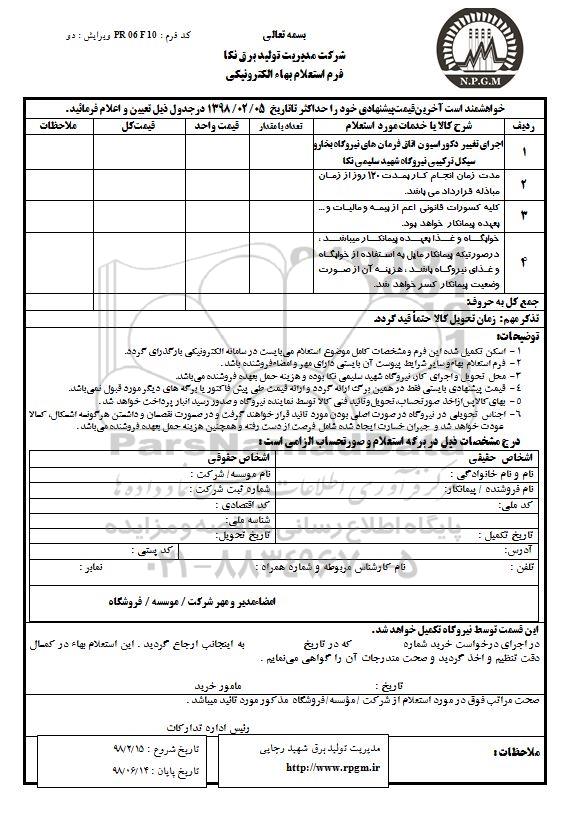 بسمه تعالی
کد فرم : PR 06 F 10 ویرایش : دو
شرکت مدیریت تولید برق نکا
فرم استعلام بهاء الکترونیکی
N.P.G.M
خواهشمند است آخرین قیمت پیشنهادی خود را حداکثر تا تاریخ ۱۳۹۸/۰۲/۰۵ در جدول ذیل تعیین و اعلام فرمائید.
ردیف شرح کالا یا خدمات مورد استعلام تعداد یا مقدار قیمت واحد قیمت کل ملاحظات
۱ اجرای تغییر دکوراسیون اتاق فرمان های نیروگاه بخار و سیکل ترکیبی نیروگاه شهید سلیمی نکا
۲ مدت زمان انجام کار بمدت ۱۲۰ روز از زمان مبادله قرارداد می باشد.
۳ کلیه کسورات قانونی اعم از بیمه و مالیات و... بعهده پیمانکار خواهد بود.
۴ خوابگاه و غذا بعهده پیمانکار میباشد ، درصورتیکه پیمانکار مایل به استفاده از خوابگاه و غذای نیروگاه باشد ، هزینه آن از صورت وضعیت پیمانکار کسر خواهد شد.
جمع کل به حروف:
تذکر مهم: زمان تحویل کالا حتماً قید گردد.
توضیحات:
۱ – اسکن تکمیل شده این فرم و مشخصات کامل موضوع استعلام می‌بایست در سامانه الکترونیکی بارگذرای گردد.
۲ – فرم استعلام بهاء و سایر شرایط پیوست آن بایستی دارای مهر و امضاء فروشنده باشد .
۳ – محل تحویل و اجرای کار، نیروگاه شهید سلیمی نکا بوده و هزینه حمل بعهده فروشنده می‌باشد.
۴ – قیمت پیشنهادی بایستی فقط در همین برگ ارائه گردد و ارائه قیمت طی پیش فاکتور یا برگه های دیگر مورد قبول نمی‌باشد.
۵ – بهای کالا پس از اخذ صورتحساب، تحویل و تائید فنی کالا توسط نماینده نیروگاه و صدور رسید انبار پرداخت خواهد شد .
۶ – اجناس تحویلی در نیروگاه در صورت اصلی بودن مورد تائید قرار خواهند گرفت و در صورت نقصان و داشتن هرگونه اشکال، کالا عودت خواهد شد و جبران خسارت ایجاد شده شامل فرصت از دست رفته و همچنین هزینه حمل بعهده فروشنده می‌باشد .
درج مشخصات ذیل در برگه استعلام و صورتحساب الزامی است :
اشخاص حقیقی اشخاص حقوقی
نام و نام خانوادگی : نام موسسه/ شرکت :
نام فروشنده / پیمانکار: شماره ثبت شرکت :
کد ملی: کد اقتصادی :
شناسه ملی:
تاریخ تکمیل : تاریخ تحویل:
آدرس: کد پستی :
تلفن : نام کارشناس مربوطه و شماره همراه : نمابر :
امضاء مدیر و مهر شرکت / موسسه / فروشگاه
این قسمت توسط نیروگاه تکمیل خواهد شد.
در اجرای درخواست خرید شماره که در تاریخ به اینجانب ارجاع گردید . این استعلام بهاء در کمسال دقت تنظیم و اخذ گردید و صحت مندرجات آن را گواهی می‌نمایم .
تاریخ : مامور خرید
صحت مراتب فوق در مورد استعلام از شرکت / مؤسسه/ فروشگاه مذکور مورد تائید میباشد .
رئیس اداره تدارکات
ملاحظات:
مدیریت تولید برق شهید رجایی
http://www.rpgm.ir
تاریخ شروع : ۹۸/۲/۱۵
تاریخ پایان : ۹۸/۰۶/۱۴
ParsNamadData
پایگاه اطلاع رسانی مناقصه و مزایده
۰۲۱-۸۸۳۴۹۶۷۰-۵